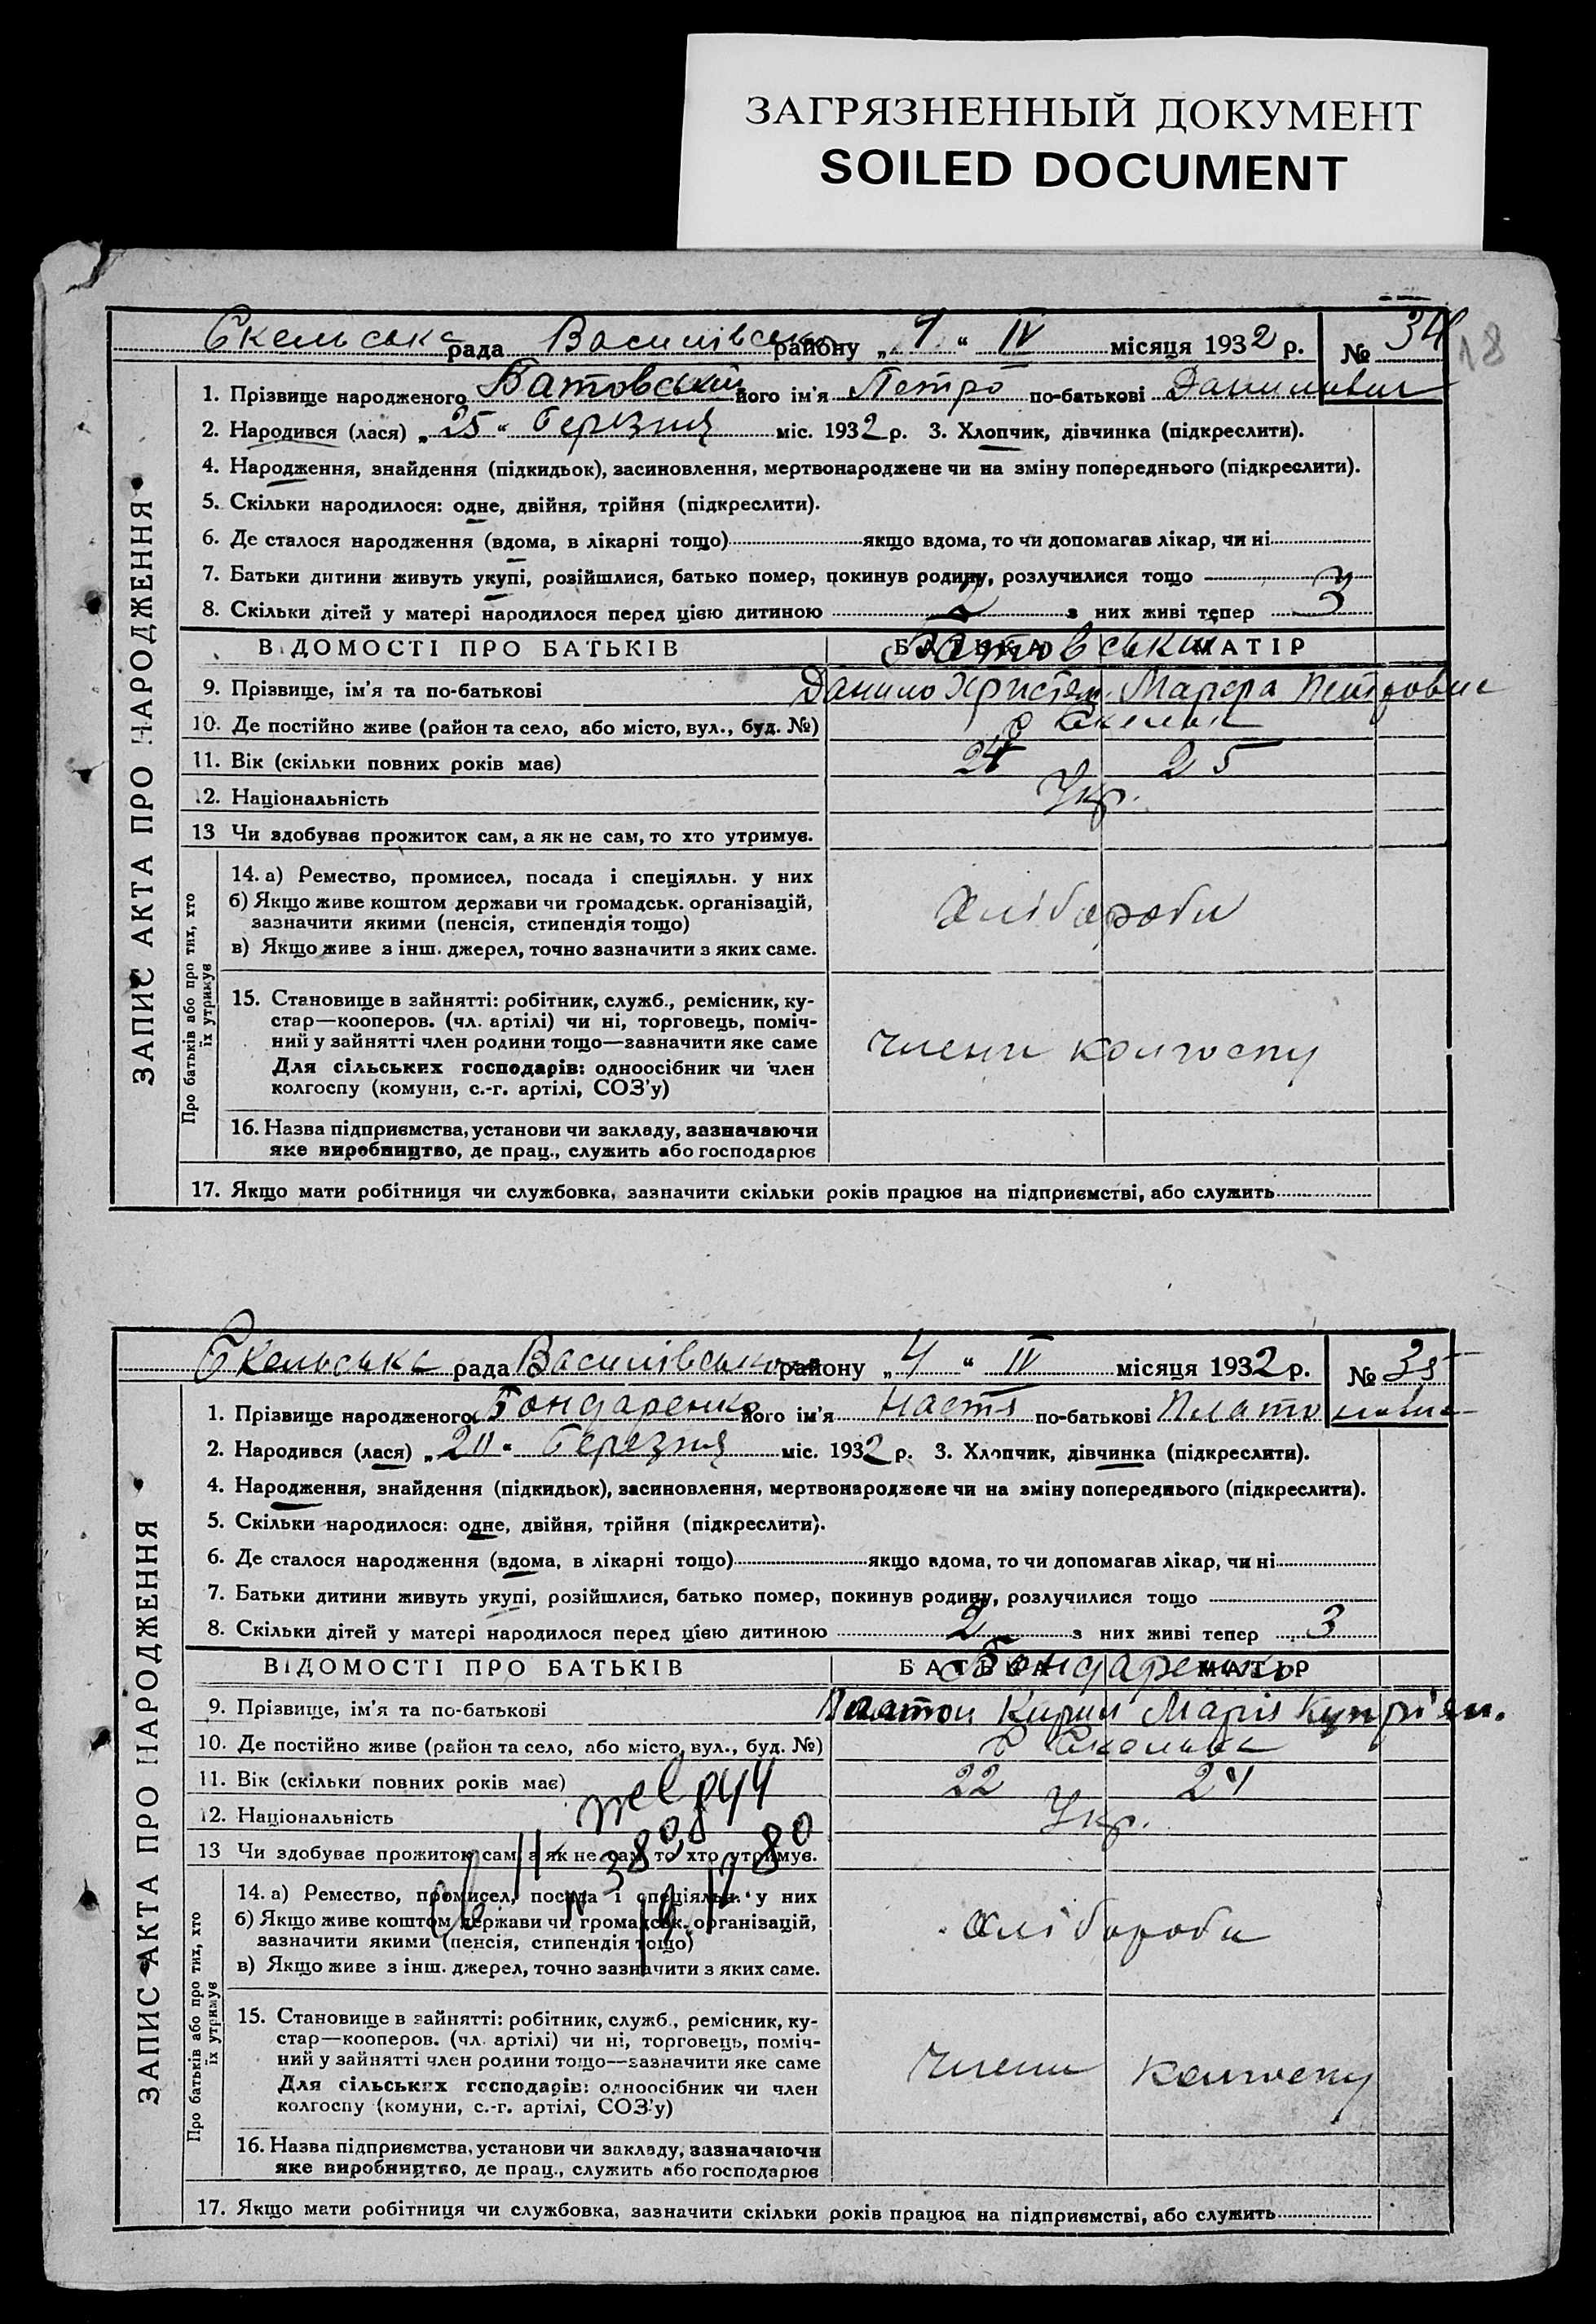 ЗАГРЯЗНЕННЫЙ ДОКУМЕНТ
SOILED DOCUMENT
Скельська рада Василівського району „4“ IV місяця 1932 р. № 34
18
1. Прізвище народженого Батовський його ім'я Петро по-батькові Данилович
2. Народився (лася) „25“ березня міс. 1932 р. 3. Хлопчик, дівчинка (підкреслити).
4. Народження, знайдення (підкидьок), засиновлення, мертвонароджене чи на зміну попереднього (підкреслити).
5. Скільки народилося: одне, двійня, трійня (підкреслити).
6. Де сталося народження (вдома, в лікарні тощо) якщо вдома, то чи допомагав лікар, чи ні
7. Батьки дитини живуть укупі, розійшлися, батько помер, покинув родину, розлучилися тощо
8. Скільки дітей у матері народилося перед цією дитиною 2 з них живі тепер 3
ВІДОМОСТІ ПРО БАТЬКІВ БАТЬКА МАТІР
Батовський
9. Прізвище, ім'я та по-батькові Данило Христян. Марфа Петровна
10. Де постійно живе (район та село, або місто, вул., буд. №) с Скельки
11. Вік (скільки повних років має) 24 25
12. Національність Укр.
13 Чи здобував прожиток сам, а як не сам, то хто утримує.
14. а) Ремество, промисел, посада і спеціяльн. у них
б) Якщо живе коштом держави чи громадськ. організацій,
зазначити якими (пенсія, стипендія тощо)
в) Якщо живе з інш. джерел, точно зазначити з яких саме.
Хлібороби
15. Становище в зайнятті: робітник, служб., ремісник, ку-
стар—кооперов. (чл. артілі) чи ні, торговець, поміч-
ний у зайнятті член родини тощо—зазначити яке саме
Для сільських господарів: одноосібник чи член
колгоспу (комуни, с.-г. артілі, СОЗ'у)
члени колгоспу
16. Назва підприємства, установи чи закладу, зазначаючи
яке виробництво, де прац., служить або господарює
17. Якщо мати робітниця чи службовка, зазначити скільки років працює на підприємстві, або служить
ЗАПИС АКТА ПРО НАРОДЖЕННЯ
Про батьків або про тих, хто
їх утримує
Скельська рада Василівського району „4“ IV місяця 1932 р. № 35
1. Прізвище народженого Бондаренко його ім'я Настя по-батькові Платоновна
2. Народився (лася) „20“ березня міс. 1932 р. 3. Хлопчик, дівчинка (підкреслити).
4. Народження, знайдення (підкидьок), засиновлення, мертвонароджене чи на зміну попереднього (підкреслити).
5. Скільки народилося: одне, двійня, трійня (підкреслити).
6. Де сталося народження (вдома, в лікарні тощо) якщо вдома, то чи допомагав лікар, чи ні
7. Батьки дитини живуть укупі, розійшлися, батько помер, покинув родину, розлучилися тощо
8. Скільки дітей у матері народилося перед цією дитиною 2 з них живі тепер 3
ВІДОМОСТІ ПРО БАТЬКІВ БАТЬКА МАТІР
Бондаренко
9. Прізвище, ім'я та по-батькові Платон Кирил Марія Купріян.
10. Де постійно живе (район та село, або місто, вул., буд. №) с Скельки
11. Вік (скільки повних років має) 22 24
12. Національність Укр.
13 Чи здобував прожиток сам, а як не сам, то хто утримує.
14. а) Ремество, промисел, посада і спеціяльн. у них
б) Якщо живе коштом держави чи громадськ. організацій,
зазначити якими (пенсія, стипендія тощо)
в) Якщо живе з інш. джерел, точно зазначити з яких саме.
Хлібороби
15. Становище в зайнятті: робітник, служб., ремісник, ку-
стар—кооперов. (чл. артілі) чи ні, торговець, поміч-
ний у зайнятті член родини тощо—зазначити яке саме
Для сільських господарів: одноосібник чи член
колгоспу (комуни, с.-г. артілі, СОЗ'у)
члени колгоспу
16. Назва підприємства, установи чи закладу, зазначаючи
яке виробництво, де прац., служить або господарює
17. Якщо мати робітниця чи службовка, зазначити скільки років працює на підприємстві, або служить
ЗАПИС АКТА ПРО НАРОДЖЕННЯ
Про батьків або про тих, хто
їх утримує